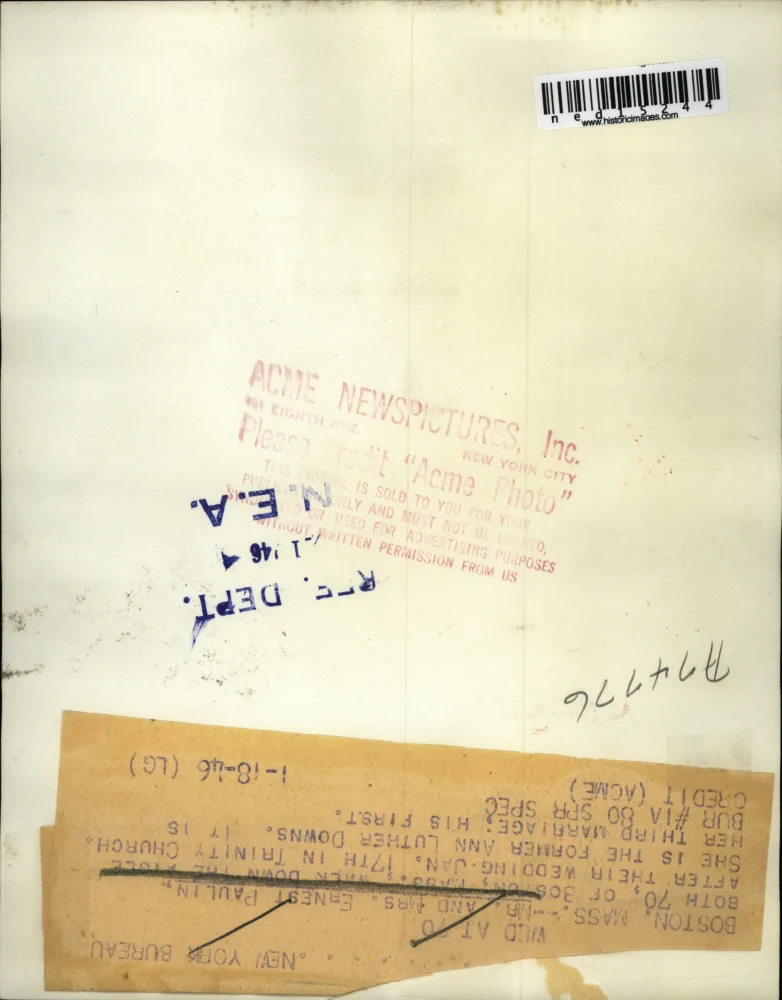 ned15244
www.historicimages.com
ACME NEWSPICTURES, Inc.
461 EIGHTH AVE. NEW YORK CITY
Please Credit "Acme Photo"
THIS PICTURE IS SOLD TO YOU FOR YOUR
PUBLICATION ONLY AND MUST NOT BE LOANED,
SYNDICATED OR USED FOR ADVERTISING PURPOSES
WITHOUT WRITTEN PERMISSION FROM US
REF. DEPT.
1 '46
N.E.A.
A74776
NEW YORK BUREAU
WED AT 70
BOSTON, MASS.--MR. AND MRS. ERNEST PAULIN,
BOTH 70, OF BOSTON, MASS., WALK DOWN THE AISLE
AFTER THEIR WEDDING JAN. 17TH IN TRINITY CHURCH.
SHE IS THE FORMER ANN LUTHER DOWNS. IT IS
HER THIRD MARRIAGE; HIS FIRST.
BUR #1A 80 SPR SPEC
CREDIT (ACME) 1-18-46 (LG)